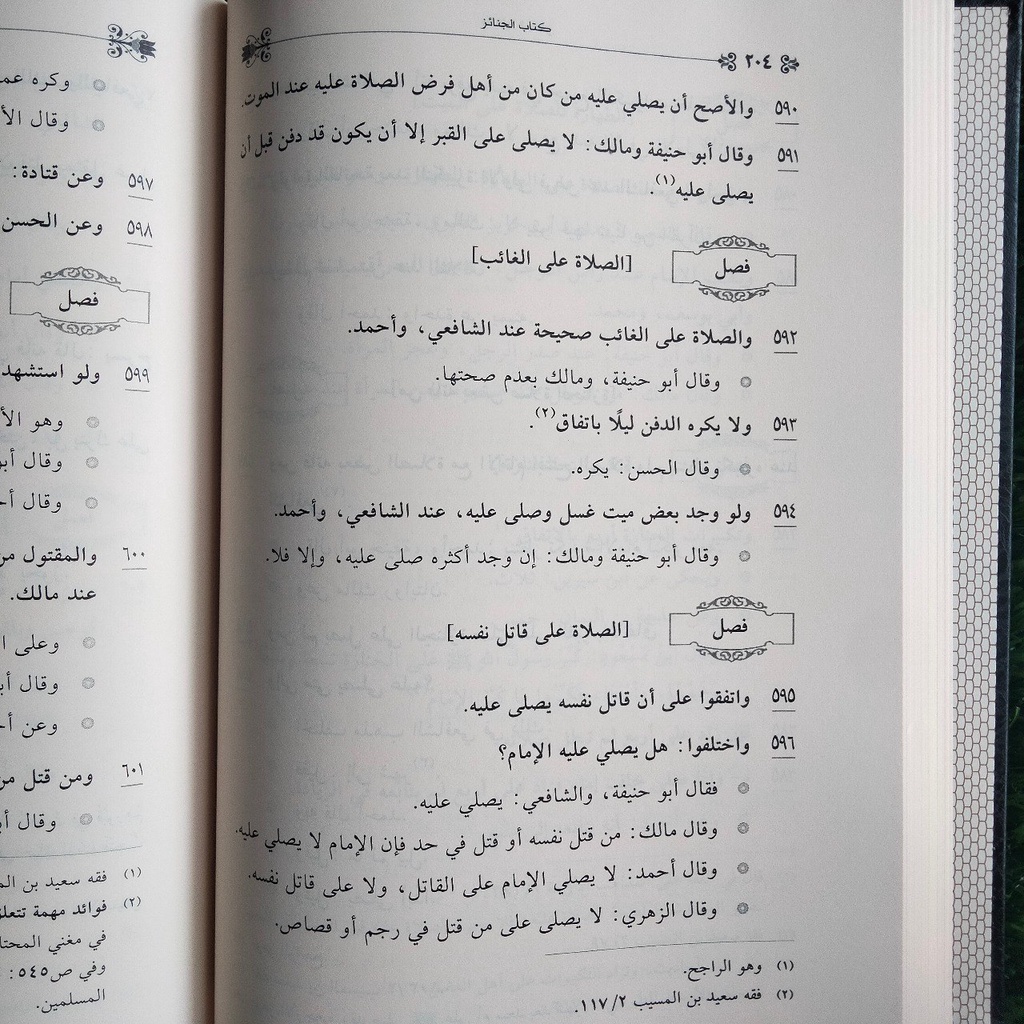 كتاب الجنائز
٢٠٤
٥٩٠ والأصح أن يصلي عليه من كان من أهل فرض الصلاة عليه عند الموت.
٥٩١ وقال أبو حنيفة ومالك: لا يصلى على القبر إلا أن يكون قد دفن قبل أن
يصلى عليه(١).
فصل [الصلاة على الغائب]
٥٩٢ والصلاة على الغائب صحيحة عند الشافعي، وأحمد.
وقال أبو حنيفة، ومالك بعدم صحتها.
٥٩٣ ولا يكره الدفن ليلًا باتفاق(٢).
وقال الحسن: يكره.
٥٩٤ ولو وجد بعض ميت غسل وصلى عليه، عند الشافعي، وأحمد.
وقال أبو حنيفة ومالك: إن وجد أكثره صلى عليه، وإلا فلا.
فصل [الصلاة على قاتل نفسه]
٥٩٥ واتفقوا على أن قاتل نفسه يصلى عليه.
٥٩٦ واختلفوا: هل يصلي عليه الإمام؟
فقال أبو حنيفة، والشافعي: يصلي عليه.
وقال مالك: من قتل نفسه أو قتل في حد فإن الإمام لا يصلي عليه.
وقال أحمد: لا يصلي الإمام على القاتل، ولا على قاتل نفسه.
وقال الزهري: لا يصلى على من قتل في رجم أو قصاص.
(١) وهو الراجح.
(٢) فقه سعيد بن المسيب ٢/ ١١٧.
وكره
وقال
٥٩٧ وعن قتادة:
٥٩٨ وعن الحسن
فصل
٥٩٩ ولو استشهد
وهو
وقال
وقال
٦٠٠ والمقتول
عند مالك.
وعلى
وقال
وعن
٦٠١ ومن قتل
وقال
(١) فقه سعيد بن
(٢) فوائد مهمة
في مغني
وفي ص٥٤٥:
المسلمين.